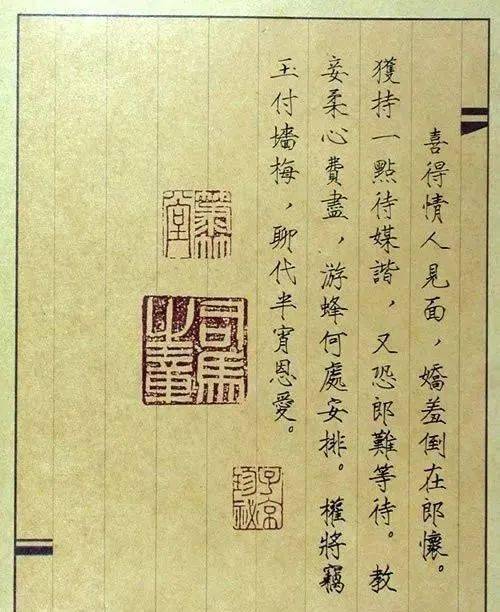 喜得情人見面，嬌羞倒在郎懷。
獲持一點待媒諧，又恐郎難等待。教
妾柔心費盡，游蜂何處安排。權將竊
玉付墻梅，聊代半宵恩愛。
堂
司馬之章
子京珍秘